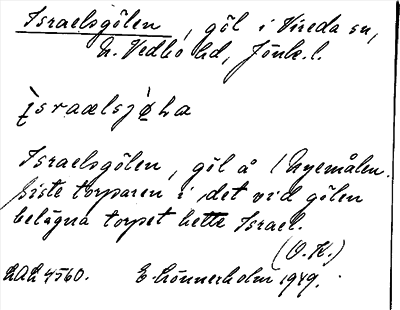 Israelsgölen, göl i Vireda sn,
N. Vedbo hd, Jönk. l.
ìsraælsjø̀la
Israelsgölen, göl å Nyemålen.
Siste torparen i det vid gölen
belägna torpet hette Israel.
(O.K.)
LAL 4560. E. Lönnerholm 1949.